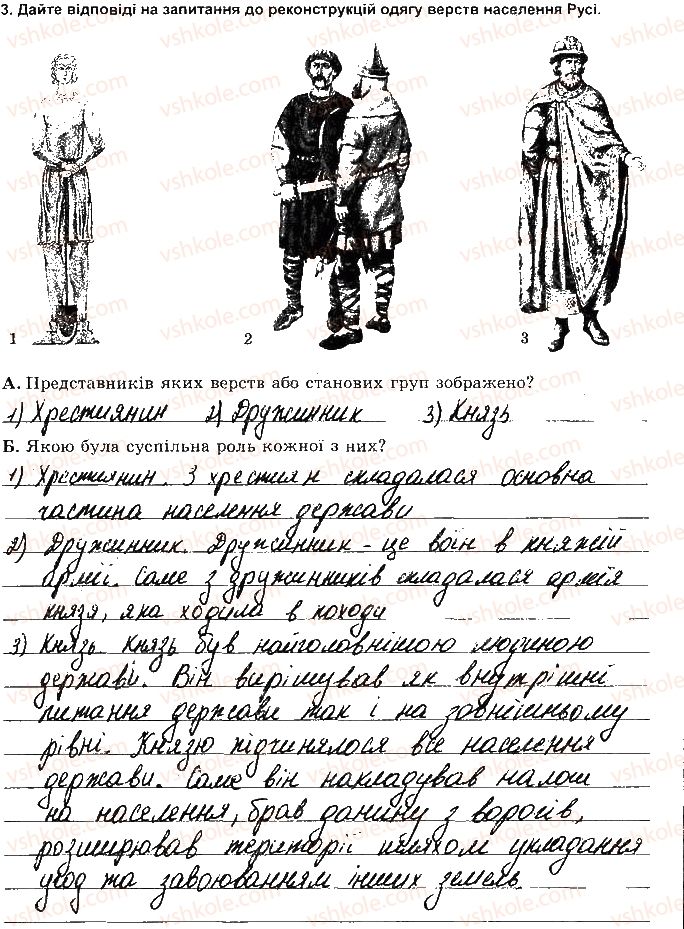 3. Дайте відповіді на запитання до реконструкцій одягу верств населення Русі.
1 2 3
А. Представників яких верств або станових груп зображено?
1) Християнин 2) Дружинник 3) Князь
Б. Якою була суспільна роль кожної з них?
1) Християнин. З християн складалася основна
частина населення держави
2) Дружинник. Дружинник - це воїн в княжій
армії. Саме з дружинників складалася армія
князя, яка ходила в походи
3) Князь Князь був найголовнішою людиною
держави. Він вирішував як внутрішні
питання держави так і на зовнішньому
рівні. Князю підчинялося все населення
держави. Саме він накладував налог
на населення, брав данину з ворогів,
розширював території шляхом укладання
угод та завоюванням інших земель
vshkole.com